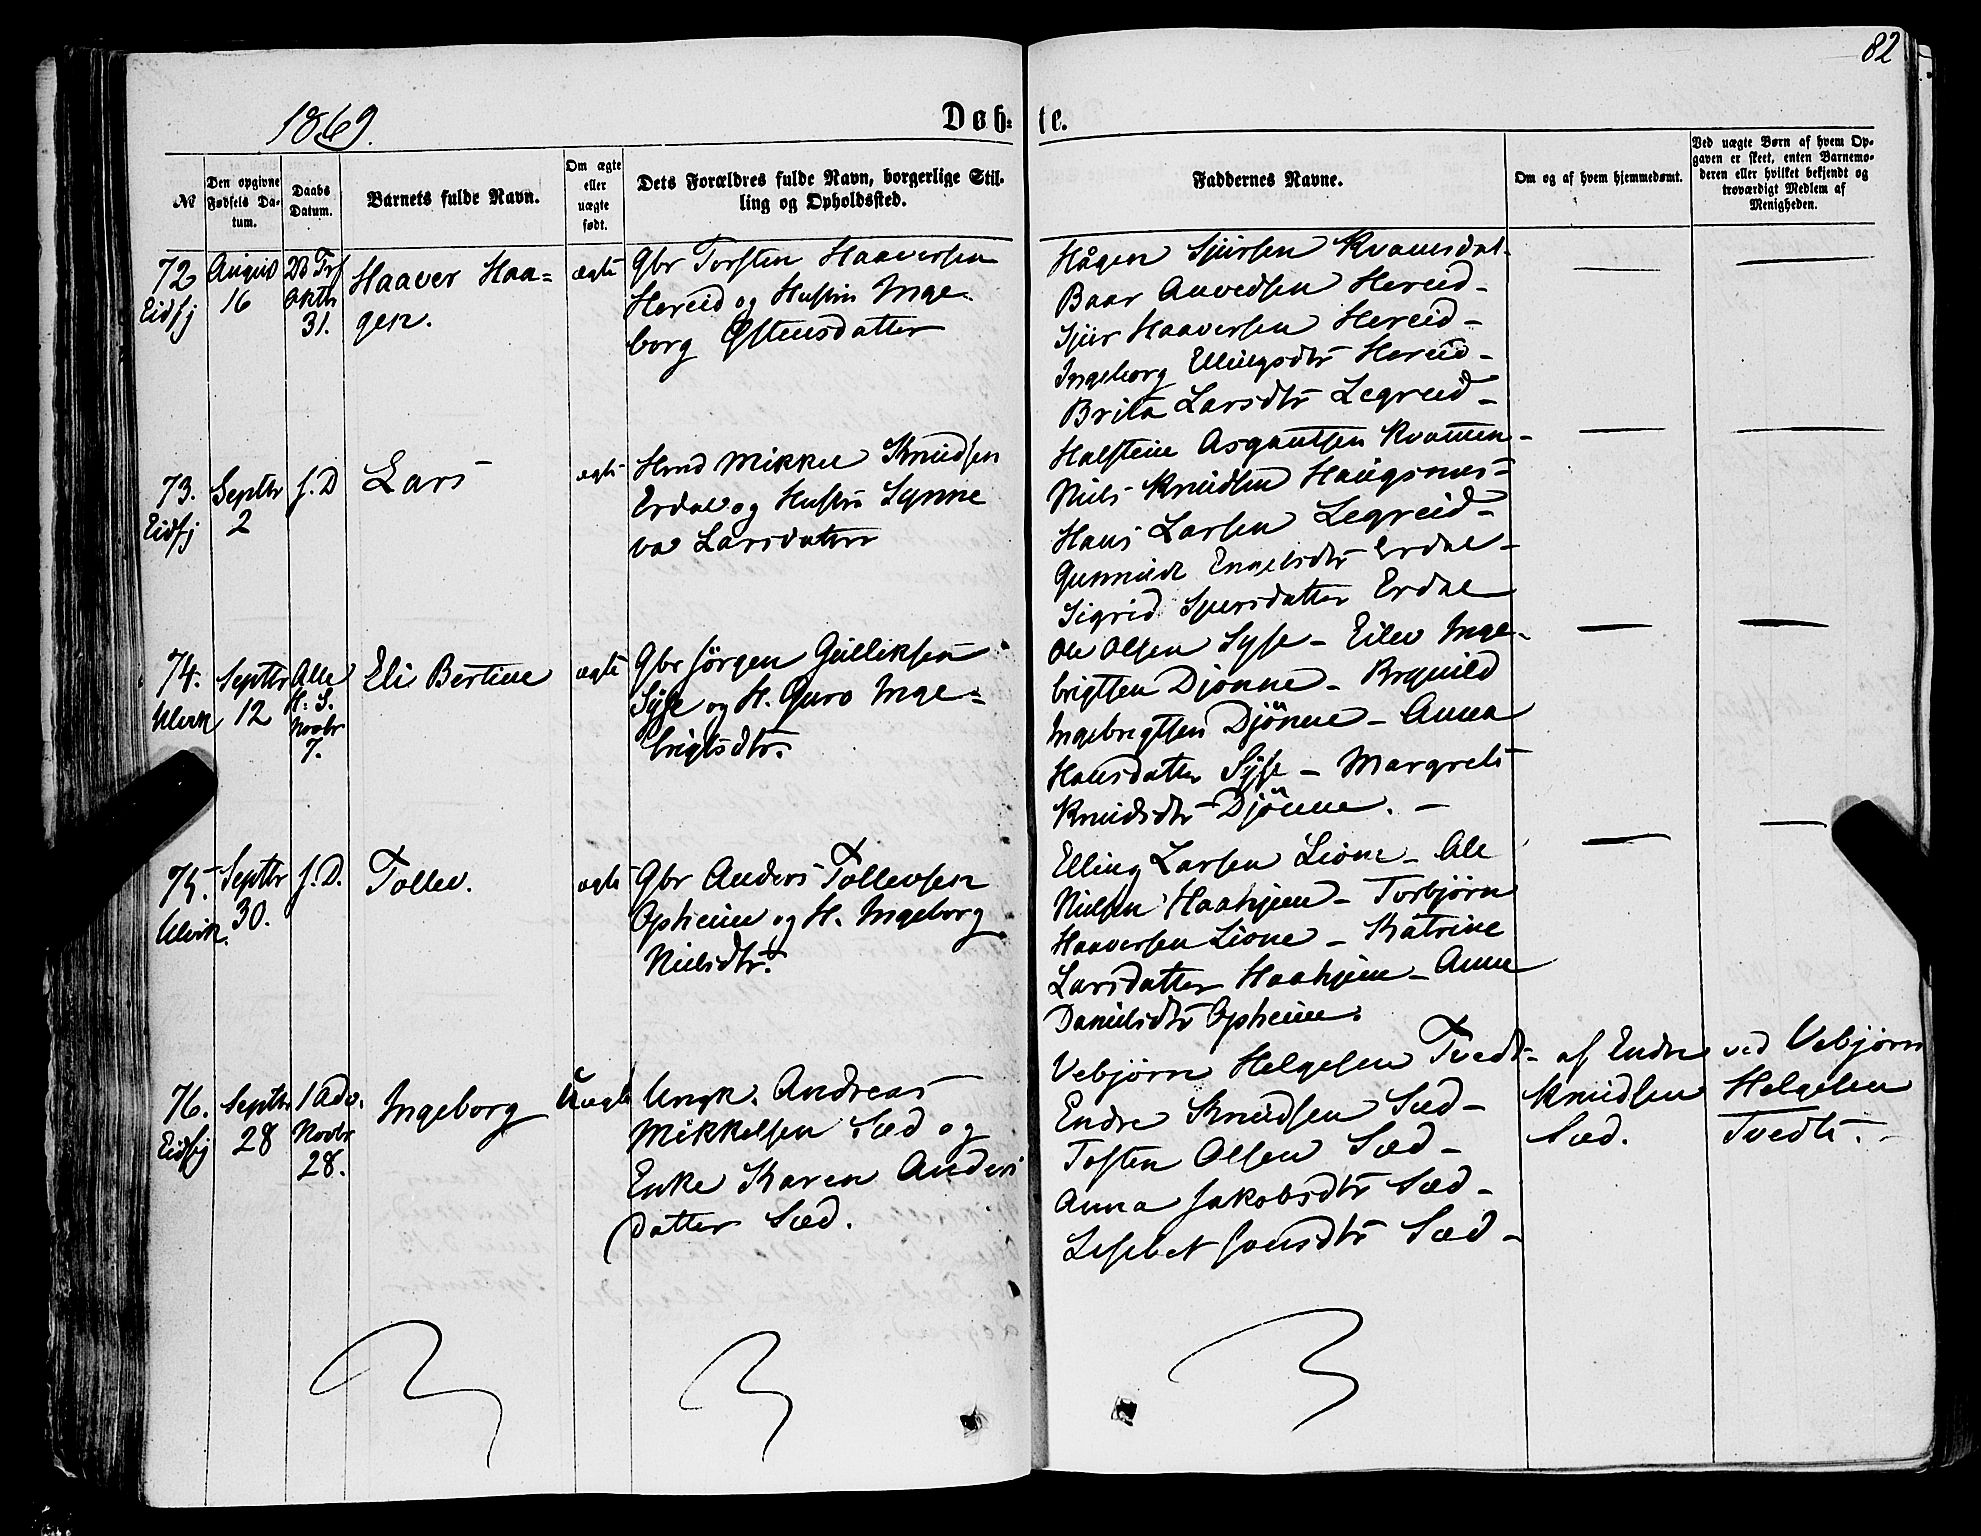 82
1869.
Døb-
te.
№
Den opgivne Fødsels Da-tum.
Daabs Datum.
Barnets fulde Navn.
Om ægte eller uægte født.
Dets Forældres fulde Navn, borgerlige Stil-
ling og Opholdssted.
Faddernes Navne.
Om og af hvem hjemmedømt.
Ved uægte Børn af hvem Op-
gaven er skeet, enten Barnemo-
deren eller hvilket bekjendt og
troværdigt Medlem af
Menigheden.
72
Eidfj
August
16
Oktbr
31.
Haaver Haa-
gen.
ægte
Gbr Torsten Haaversen
Hereid og Hustru Inge-
borg Østensdatter
Hågen Sjursen Kvamsdal-
Baar Anvedsen Hereid-
Sjur Haaversen Hereid-
Ingeborg Ellingsdtr Hereid-
Brita Larsdtr Legreid-
73.
Eidfj
Septbr
2
s. D
Lars
ægte
Hmd Mikkel Knudsen
Erdal og Hustru Synne
va Larsdatter
Halstein Asgautsen Kvammen-
Niels Knudsen Haugsnes-
Hans Larsen Legreid-
Gunnild Engelsdtr Erdal-
Sigrid Sjursdatter Erdal
74.
Ulvik
Septbr
12
Alle
H. S.
Novbr
7.
Eli Bertine
ægte
Gbr Jörgen Gulliksen
Syse og H. Guro Inge-
brigtsdtr.
Ole Olsen Syse- Eilev Inge-
brigtsen Djönne- Brynild
Ingebrigtsen Djönne- Anna
Hansdatter Syse- Margrete
Knudsdtr Djönne.-
75.
Ulvik.
Septbr
30.
s. D.
Tollev.
ægte
Gbr Anders Tollevsen
Opheim og H. Ingeborg
Nielsdtr.
Elling Larsen Lione- Ole
Nielsen Haahjem- Torbjörn
Haaversen Lione- Katrine
Larsdatter Haahjem- Anna
Danielsdtr Opheim.
76.
Eidfj
Septbr
28
1 Adv.
Novbr
28.
Ingeborg
Uægte
Ungk. Andreas
Mikkelsen Sæd og
Enke Karen Anders
datter Sæd.
Vebjörn Helgesen Tvedt-
Endre Knudsen Sæd-
Tosten Olsen Sæd-
Anna Jakobsdtr Sæd-
Lisbet Jonsdtr Sæd-
af Endre
Knudsen
Sæd.
ved Vebjörn
Helgesen
Tvedt.-